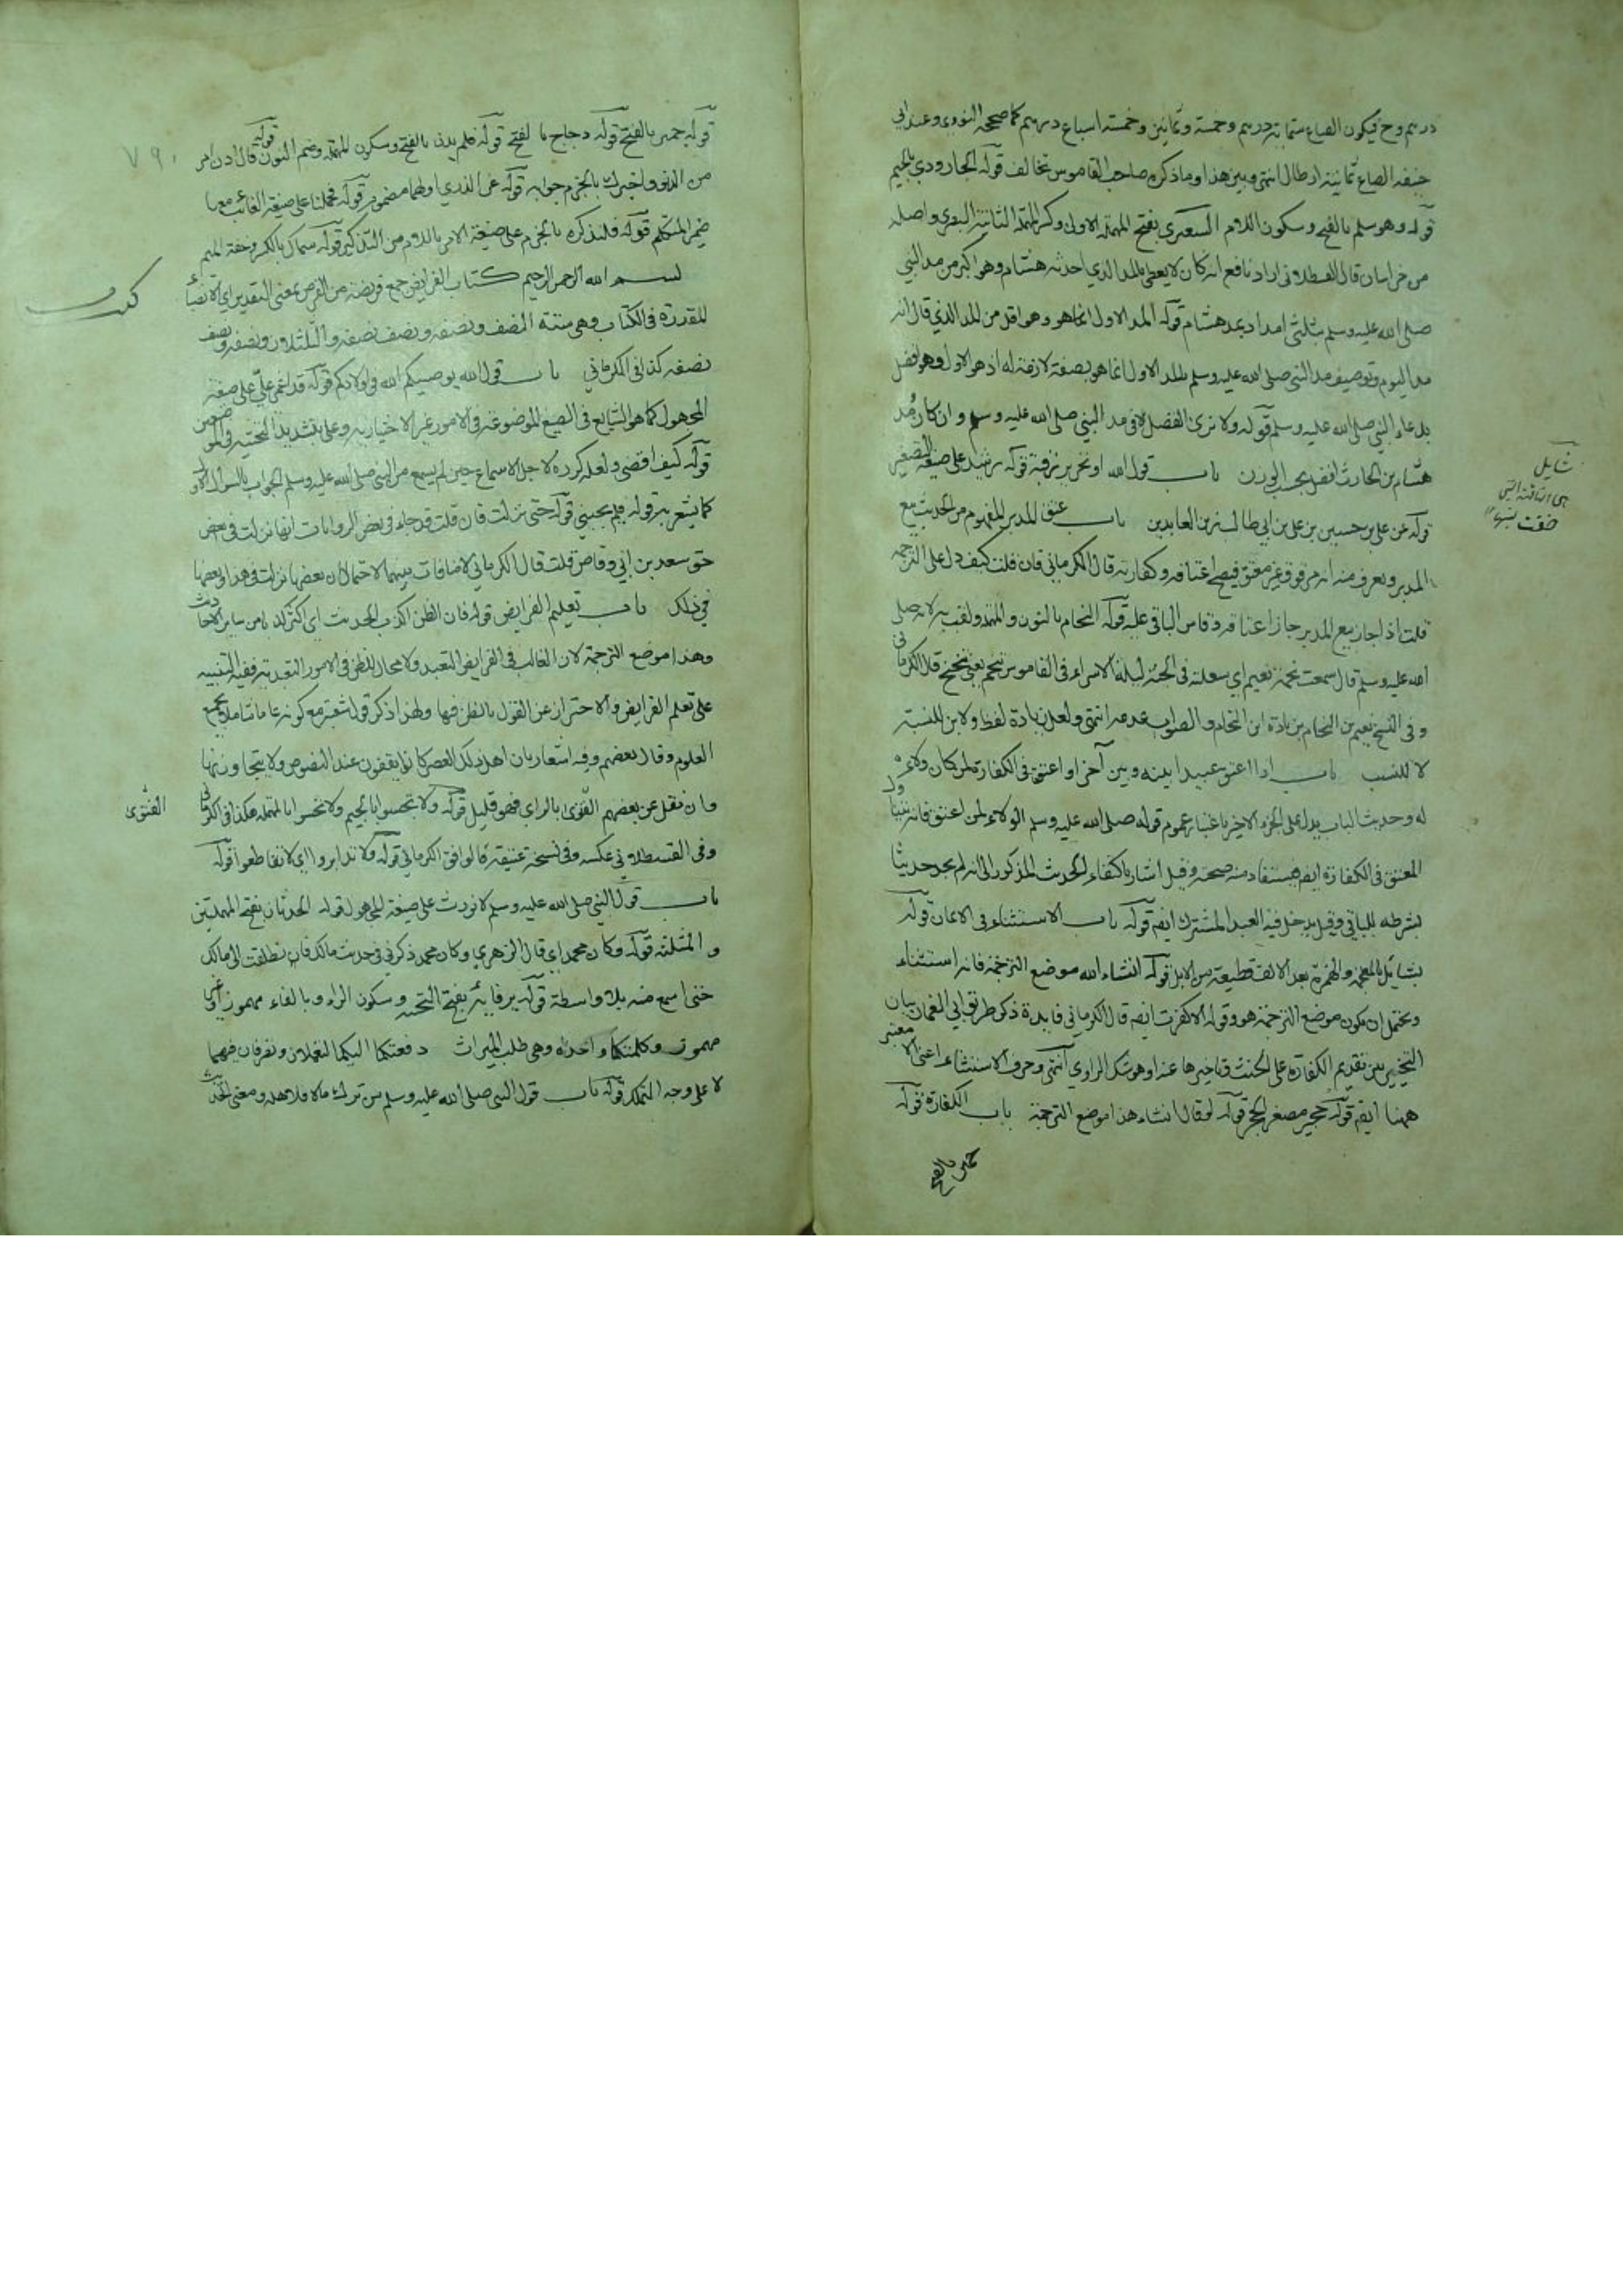 درهم وح فيكون الصاع ستمائة درهم وخمسة وثمانين وخمسة اسباع درهم كما صححه النووي وعند ابي
حنيفة الصاع ثمانية ارطال انتهى وبين هذا وما ذكره صاحب القاموس تخالف قوله الجارودي بالجيم
قوله وهو سلم بالفتح وسكون اللام السعيري بفتح المهملة الاولى وكسر المهملة الثانية البصري واصله
من خراسان قال القسطلاني اراد نافع انه كان لا يعطي بالمد الذي احدثه هشام وهو اكبر من مد النبي
صلى الله عليه وسلم بثلثي امداد بمد هشام قوله المد الاول انما هو وهو اقل من المد الذي قال انه
مد اليوم وتوصيف مد النبي صلى الله عليه وسلم بالمد الاول انما هو بصفة لازمة له اذ هو الاول وهو افضل
بدعاء النبي صلى الله عليه وسلم قوله ولا نرى الفضل الا في مد النبي صلى الله عليه وسلم وان كان مد
هشام بن الحارث افضل بحسب الوزن باب قول الله او تحرير رقبة قوله رشيد على صيغة التصغير
قوله عن علي بن حسين بن علي بن ابي طالب زين العابدين باب عتق المدبر المفهوم من الحديث بيع
المدبر ويعرف منه انه مرقوق غير معتق فيصح اعتاقه وكفارته قال الكرماني فان قلت كيف دل على الترجمة
قلت اذا جاز بيع المدبر جاز اعتاقه وقاس الباقي عليه قوله النحام بالنون والمهملة ولقب به لانه صلى
الله عليه وسلم قال سمعت نحمة نعيم اي سعلته في الجنة ليلة الاسراء في القاموس نحم يعني تنحنح قال الكرماني
وفي النسخ نعيم بن النحام بزيادة ابن النحام والصواب عدمه انتهى ولعل زيادة لفظ ولا بن للنسبة
لا للنسب باب اذا اعتق عبدا بينه وبين آخر او اعتق في الكفارة لمن كان ولاؤه
له وحديث الباب يدل على الجزء الاخير باعتبار عموم قوله صلى الله عليه وسلم الولاء لمن اعتق فانه
المعتق في الكفارة ايضا مستفاد منه صحته وقيل اشار باكتفاء الحديث المذكور الى انه لم يجد حديثا
بشرطه للباقي وقيل يدخل فيه العبد المشترك ايضا قوله باب الاستثناء في الايمان قوله
بشايل بالمعجمة والهمزة بعد الالف قطيعة من الابل قوله انشاء الله موضع الترجمة فانه استثناء
ويحتمل ان يكون موضع الترجمة هو وقوله الا كفرت ايضا قال الكرماني فايدة ذكر طريق ابي النعمان بيان
التخيير بين تقديم الكفارة على الحنث وتاخيرها عنه او هو شك الراوي انتهى وحرف الاستثناء اعني الا معتبر
ههنا ايضا قوله حجير مصغر الحجر قوله لو قال انشاء هذا موضع الترجمة باب الكفارة قوله
شايل
حميس بالفتح
٧٩٠
قوله حميس بالفتح قوله دجاج بالفتح قوله فلم يدن بالفتح وسكون المهملة وضم النون قوله قال ادن امر
من الدنو واخبرك بالجزم جوابه قوله غر الذرى اولهما مضموم قوله فحملنا على صيغة الغائب مع
ضمير المتكلم قوله فلنذكره بالجزم على صيغة الامر باللام من التذكير قوله سماك بالكسر وخفة الميم
بسم الله الرحمن الرحيم كتاب الفرايض جمع فريضة من الفرض بمعنى التقدير اي الانصباء
المقدرة في الكتاب وهي ستة النصف ونصفه ونصف نصفه والثلثان ونصفه ونصف
نصفه كذا في الكرماني باب قول الله يوصيكم الله في اولادكم قوله قد اغمي علي على صيغة
المجهول كما هو الشايع في الصيغ الموضوعة في الامور غير الاختيارية وعلي بتشديد التحتية في الموضعين
قوله كيف اقضي ولعله كرره لاجل الاسماع حين لم يسمع من النبي صلى الله عليه وسلم الجواب بالسؤال الاول
كما يشعر به قوله فلم يجبني قوله حتى نزلت فان قلت قد جاء في بعض الروايات انها نزلت في بعض
حق سعد بن ابي وقاص قلت قال الكرماني لا منافات بينهما لاحتمال ان بعضها نزلت في هذا وبعضها
في ذلك باب تعليم الفرايض قوله فان الظن اكذب الحديث اي اكثر كذبا من ساير الاحاديث
وهذا موضع الترجمة لان الغالب في الفرايض التعبد ولا مجال للظن في الامور التعبدية ففيه التنبيه
على تعلم الفرايض والاحتراز عن القول بالظن فيها ولهذا ذكر قول عقبة مع كونه عاما شاملا بجميع
العلوم وقال بعضهم وفيه اشعار بان اهل ذلك العصر كانوا يقفون عند النصوص ولا يتجاوزنها
وان نقل عن بعضهم الفتوى بالراي فهو قليل قوله ولا تجسسوا بالجيم ولا تحسسوا بالمهملة هكذا في الكرماني
الفتوى
وفي القسطلاني عكسه وفي نسخة عتيقة كما وافق الكرماني قوله ولا تدابروا اي لا تقاطعوا قوله
باب قول النبي صلى الله عليه وسلم لا نورث على صيغة المجهول قوله الحدثان بفتح المهملتين
والمثلثة قوله وكان محمد اي قال الزهري وكان محمد ذكر لي في حديث مالك فانطلقت الى مالك
حتى اسمع منه بلا واسطة قوله يرفا بفتح التحتية وسكون الراء وبالفاء مهموز او غير
مهموز وكلمتكما واحدة وهي طلب الميراث دفعتكما اليكما لتعملان وتصرفان فيهما
لا على وجه التملك قوله باب قول النبي صلى الله عليه وسلم من ترك مالا فلاهله ومعنى الحديث